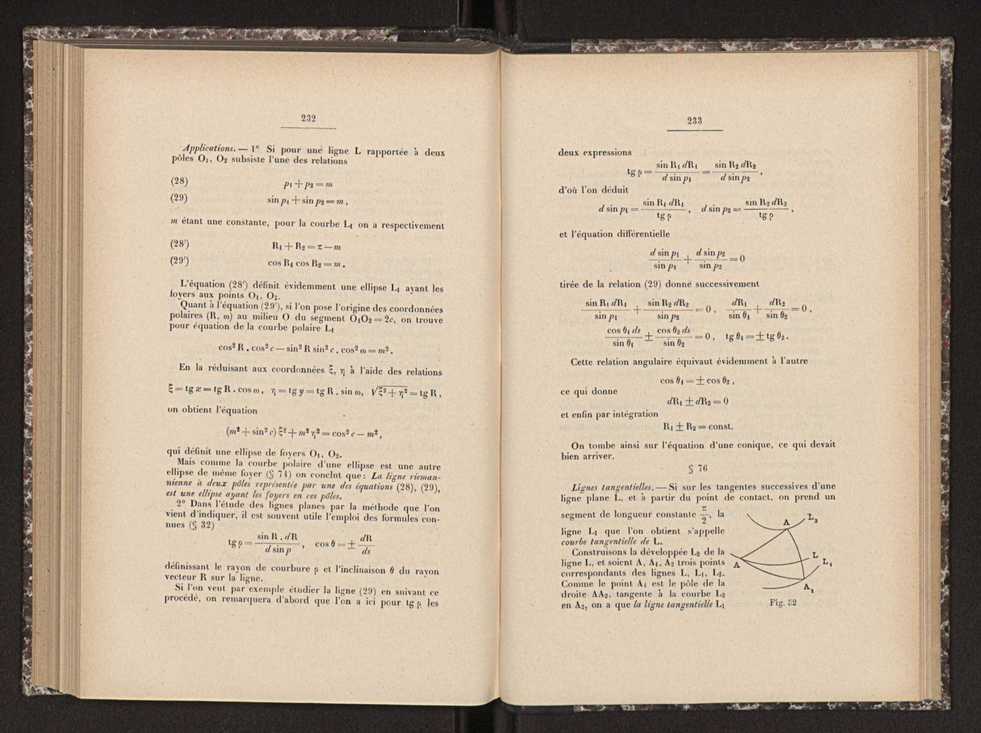 232
Applications. — 1° Si pour une ligne L rapportée à deux
pôles O₁, O₂ subsiste l'une des relations
(28) p₁ + p₂ = m
(29) sin p₁ + sin p₂ = m ,
m étant une constante, pour la courbe L₁ on a respectivement
(28') R₁ + R₂ = π — m
(29') cos R₁ cos R₂ = m .
L'équation (28') définit évidemment une ellipse L₁ ayant les
foyers aux points O₁, O₂.
Quant à l'équation (29'), si l'on pose l'origine des coordonnées
polaires (R, ω) au milieu O du segment O₁O₂ = 2c, on trouve
pour équation de la courbe polaire L₁
cos² R . cos² c — sin² R sin² c . cos² m = m² .
En la réduisant aux coordonnées ξ, η à l'aide des relations
ξ = tg x = tg R . cos ω, η = tg y = tg R . sin ω, √ξ² + η² = tg R ,
on obtient l'équation
(m² + sin² c) ξ² + m² η² = cos² c — m² ,
qui définit une ellipse de foyers O₁, O₂.
Mais comme la courbe polaire d'une ellipse est une autre
ellipse de même foyer (§ 74) on conclut que: La ligne rieman-
nienne à deux pôles représentée par une des équations (28), (29),
est une ellipse ayant les foyers en ces pôles.
2° Dans l'étude des lignes planes par la méthode que l'on
vient d'indiquer, il est souvent utile l'emploi des formules con-
nues (§ 32)
tg ρ = sin R . dR / d sin p , cos θ = ± dR / ds
définissant le rayon de courbure ρ et l'inclinaison θ du rayon
vecteur R sur la ligne.
Si l'on veut par exemple étudier la ligne (29) en suivant ce
procédé, on remarquera d'abord que l'on a ici pour tg ρ les
233
deux expressions
tg ρ = sin R₁ dR₁ / d sin p₁ = sin R₂ dR₂ / d sin p₂ ,
d'où l'on déduit
d sin p₁ = sin R₁ dR₁ / tg ρ , d sin p₂ = sin R₂ dR₂ / tg ρ ,
et l'équation différentielle
d sin p₁ / sin p₁ + d sin p₂ / sin p₂ = 0
tirée de la relation (29) donne successivement
sin R₁ dR₁ / sin p₁ + sin R₂ dR₂ / sin p₂ = 0 , dR₁ / sin θ₁ + dR₂ / sin θ₂ = 0 ,
cos θ₁ ds / sin θ₁ ± cos θ₂ ds / sin θ₂ = 0 , tg θ₁ = ± tg θ₂ .
Cette relation angulaire équivaut évidemment à l'autre
cos θ₁ = ± cos θ₂ ,
ce qui donne
dR₁ ± dR₂ = 0
et enfin par intégration
R₁ ± R₂ = const.
On tombe ainsi sur l'équation d'une conique, ce qui devait
bien arriver.
§ 76
Lignes tangentielles. — Si sur les tangentes successives d'une
ligne plane L, et à partir du point de contact, on prend un
segment de longueur constante π/2, la
ligne L₁ que l'on obtient s'appelle
courbe tangentielle de L.
Construisons la développée L₂ de la
ligne L, et soient A, A₁, A₂ trois points
correspondants des lignes L, L₁, L₂.
Comme le point A₁ est le pôle de la
droite AA₂, tangente à la courbe L₂
en A₂, on a que la ligne tangentielle L₁
A L₂
L
A L₁
A₁
Fig. 32